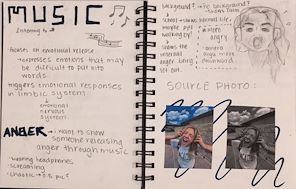 MUSIC
listening to
focuses on emotional release
→ expresses emotions that may
be difficult to put into
words.
triggers emotional responses
in limbic system.
↓
emotional
nervous
system
ANGER → want to show
someone releasing
anger through music
- wearing headphones
- screaming
- chaotic →
background? → no background?
school → shows normal life,
maybe ppl
walking by?
shows the
internal
anger being
let out.
more
angry
camera
angle more
downward
SOURCE PHOTO: